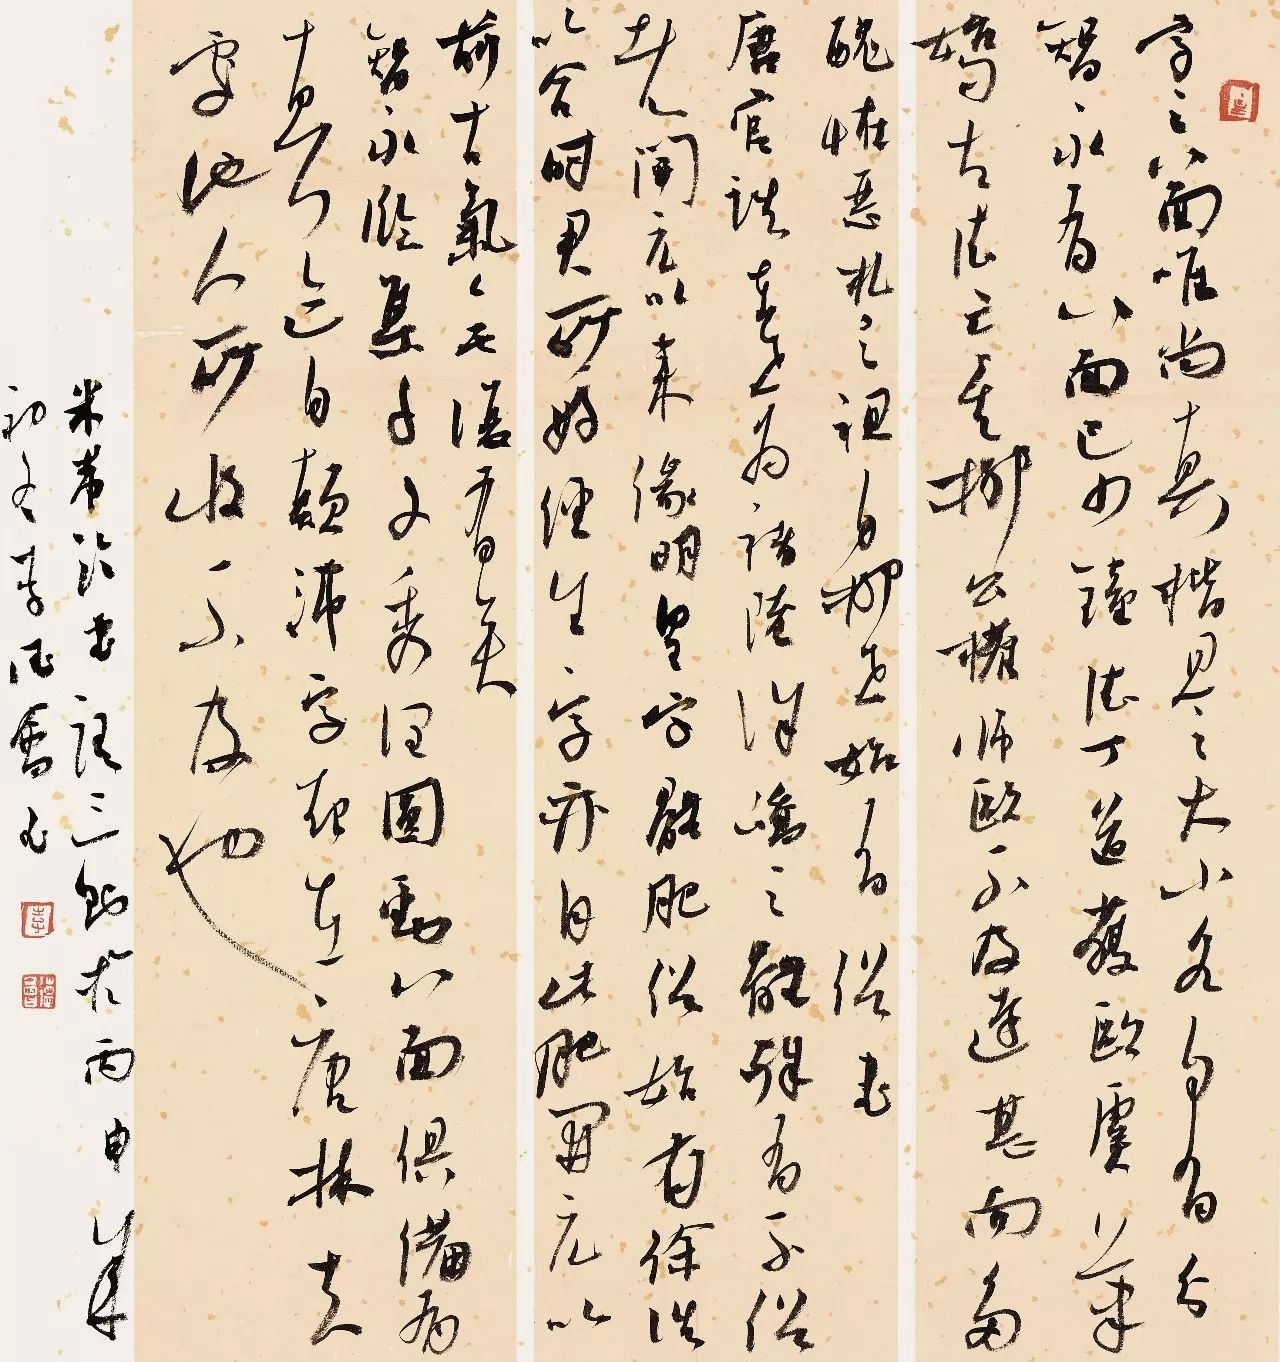 字之八面唯尚真楷見之大小各自有分
智永有八面已少鍾法丁道護歐虞筆
始勻古法亡矣柳公權師歐不及遠甚而為
醜怪惡札之祖自柳世始有俗書
唐官誥在世為褚陸徐嶠之體殊有不俗
者開元以來緣明皇字體肥俗始有徐浩
以合時君所好經生字亦自此肥開元以
前古氣無復有矣
智永臨集千文秀潤圓勁八面俱備有
真跡自顛沛字起在唐林夫
處他人所收不及也
米芾論書語三則於丙申年
初冬李德書